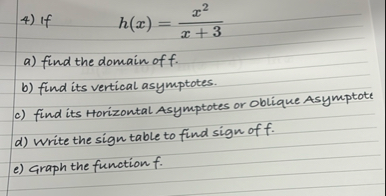 4) If h(x) = x² / (x + 3)
a) find the domain of f.
b) find its vertical asymptotes.
c) find its Horizontal Asymptotes or Oblique Asymptote
d) Write the sign table to find sign of f.
e) Graph the function f.